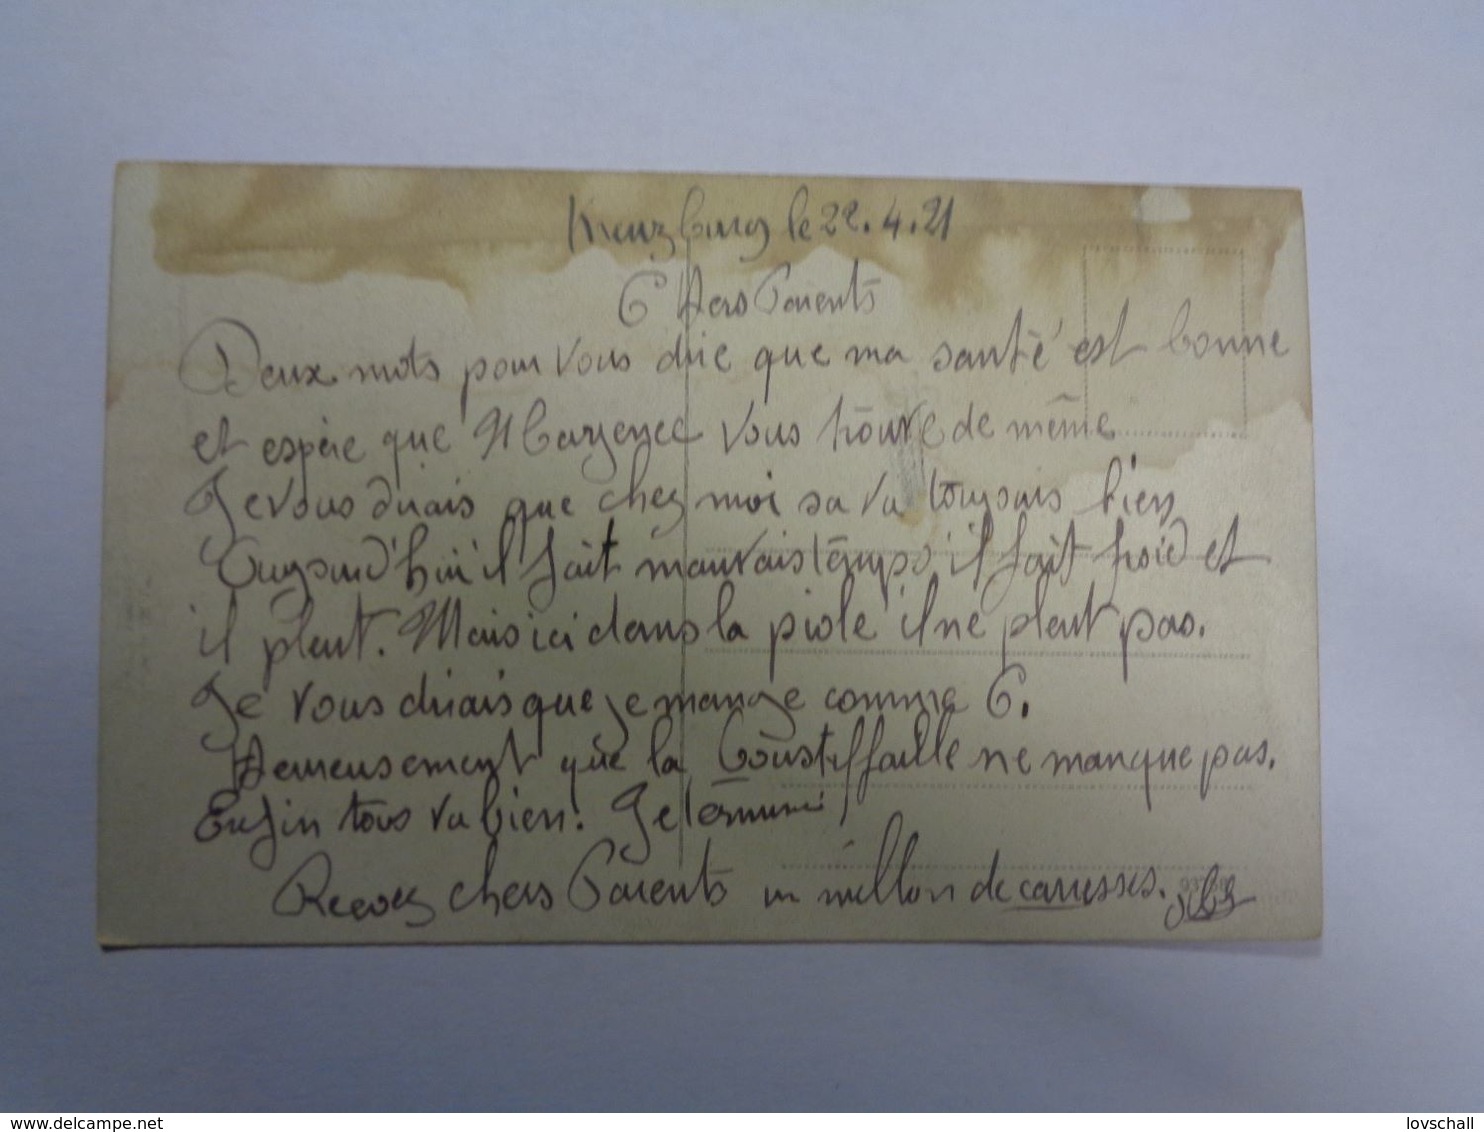 Kreuzburg le 22.4.21
Chers Parents
Deux mots pour vous dire que ma santé est bonne
et espère que vous trouve de même
Je vous dirais que chez moi sa va toujours bien
Aujourd'hui il fait mauvais temps il fait froid et
il pleut. Mais ici dans la piole il ne pleut pas.
Je vous dirais que je mange comme 6.
Heureusement que la Coustiffaille ne manque pas.
Enfin tous va bien. Je termine
Recevez chers Parents un million de caresses.
delcampe.net
lovschall